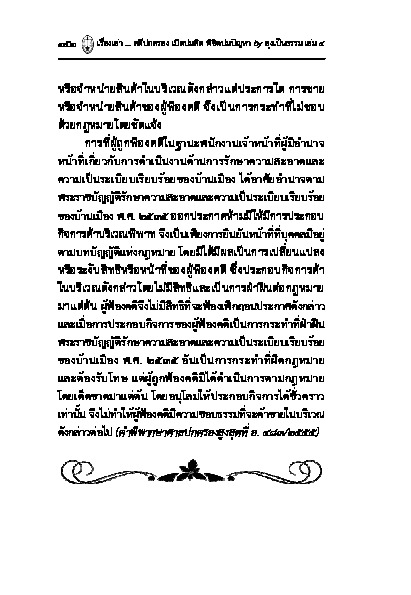 เรื่องเล่า ... คดีปกครอง เปิดปมคิด พิชิตปมปัญหา by ลุงเป็นธรรม เล่ม ๔
หรือจำหน่ายสินค้าในบริเวณดังกล่าวแต่ประการใด การขาย
หรือจำหน่ายสินค้าของผู้ฟ้องคดี จึงเป็นการกระทำที่ไม่ชอบ
ด้วยกฎหมายโดยชัดแจ้ง
การที่ผู้ถูกฟ้องคดีในฐานะพนักงานเจ้าหน้าที่ผู้มีอำนาจ
หน้าที่เกี่ยวกับการดำเนินงานด้านการรักษาความสะอาดและ
ความเป็นระเบียบเรียบร้อยของบ้านเมือง ได้อาศัยอำนาจตาม
พระราชบัญญัติรักษาความสะอาดและความเป็นระเบียบเรียบร้อย
ของบ้านเมือง พ.ศ. ๒๕๓๕ ออกประกาศห้ามมิให้มีการประกอบ
กิจการค้าบริเวณพิพาท จึงเป็นเพียงการยืนยันหน้าที่ที่บุคคลมีอยู่
ตามบทบัญญัติแห่งกฎหมาย โดยมิได้มีผลเป็นการเปลี่ยนแปลง
หรือระงับสิทธิหรือหน้าที่ของผู้ฟ้องคดี ซึ่งประกอบกิจการค้า
ในบริเวณดังกล่าวโดยไม่มีสิทธิและเป็นการฝ่าฝืนต่อกฎหมาย
มาแต่ต้น ผู้ฟ้องคดีจึงไม่มีสิทธิที่จะฟ้องเพิกถอนประกาศดังกล่าว
และเมื่อการประกอบกิจการของผู้ฟ้องคดีเป็นการกระทำที่ฝ่าฝืน
พระราชบัญญัติรักษาความสะอาดและความเป็นระเบียบเรียบร้อย
ของบ้านเมือง พ.ศ. ๒๕๓๕ อันเป็นการกระทำที่ผิดกฎหมาย
และต้องรับโทษ แต่ผู้ถูกฟ้องคดีมิได้ดำเนินการตามกฎหมาย
โดยเด็ดขาดมาแต่ต้น โดยอนุโลมให้ประกอบกิจการได้ชั่วคราว
เท่านั้น จึงไม่ทำให้ผู้ฟ้องคดีมีความชอบธรรมที่จะค้าขายในบริเวณ
ดังกล่าวต่อไป (คำพิพากษาศาลปกครองสูงสุดที่ อ.